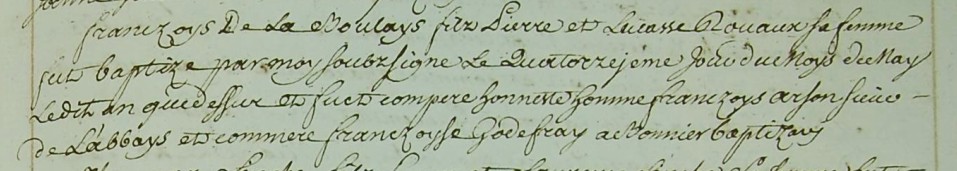 franczoys De La Boulays filz Pierre et Lucasse Rouaux sa femme
fut baptize par moy soubz signe Le Quatorzejeme Jour du Moys de May
Ledit an que dessur et fuct compere honneste homme franczoys arson sieur
de Labbays et commere franczoyse Godefray a Monnier baptizavy